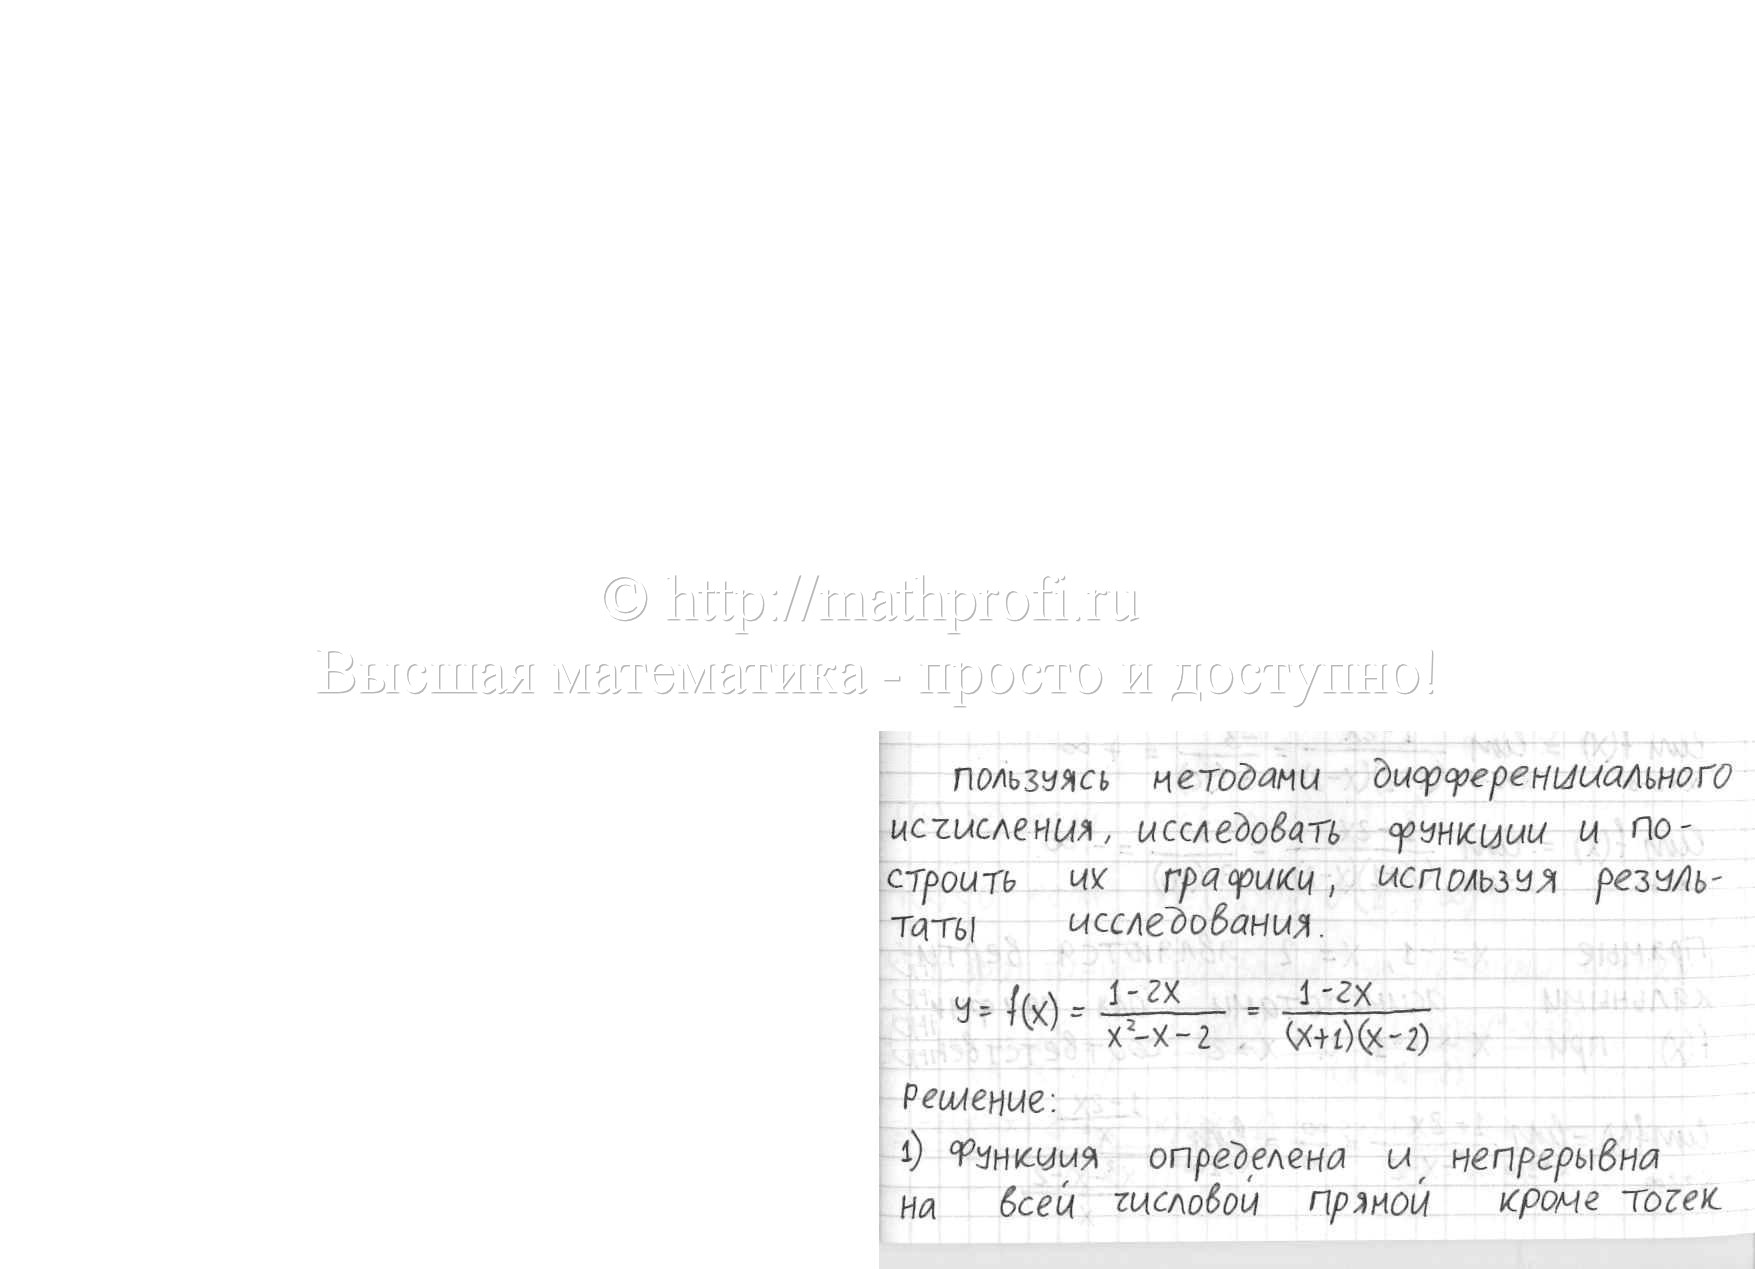 © http://mathprofi.ru
Высшая математика - просто и доступно!
пользуясь методами дифференциального
исчисления, исследовать функции и по-
строить их графики, используя резуль-
таты исследования.
y = f(x) = \frac{1-2x}{x^2-x-2} = \frac{1-2x}{(x+1)(x-2)}
Решение:
1) Функция определена и непрерывна
на всей числовой прямой кроме точек